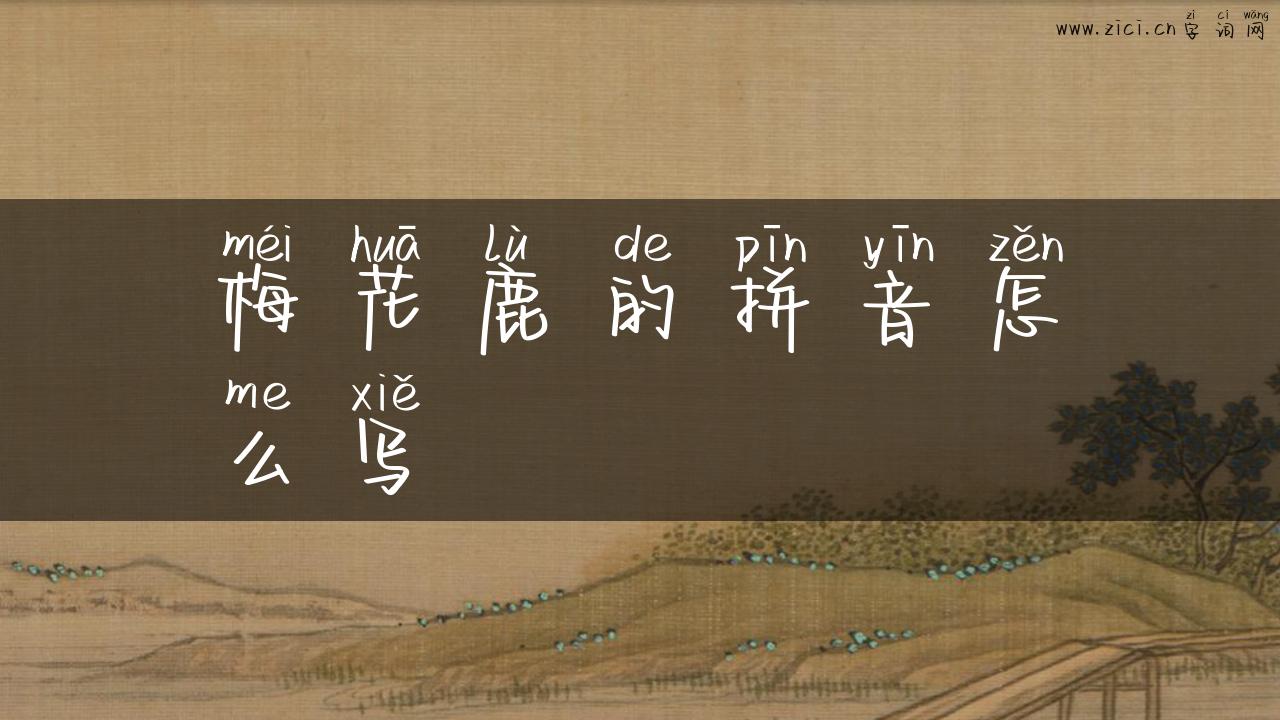 zì cí wǎng
www.zici.cn 字 词 网
méi huā lù de pīn yīn zěn
梅 花 鹿 的 拼 音 怎
me xiě
么 写